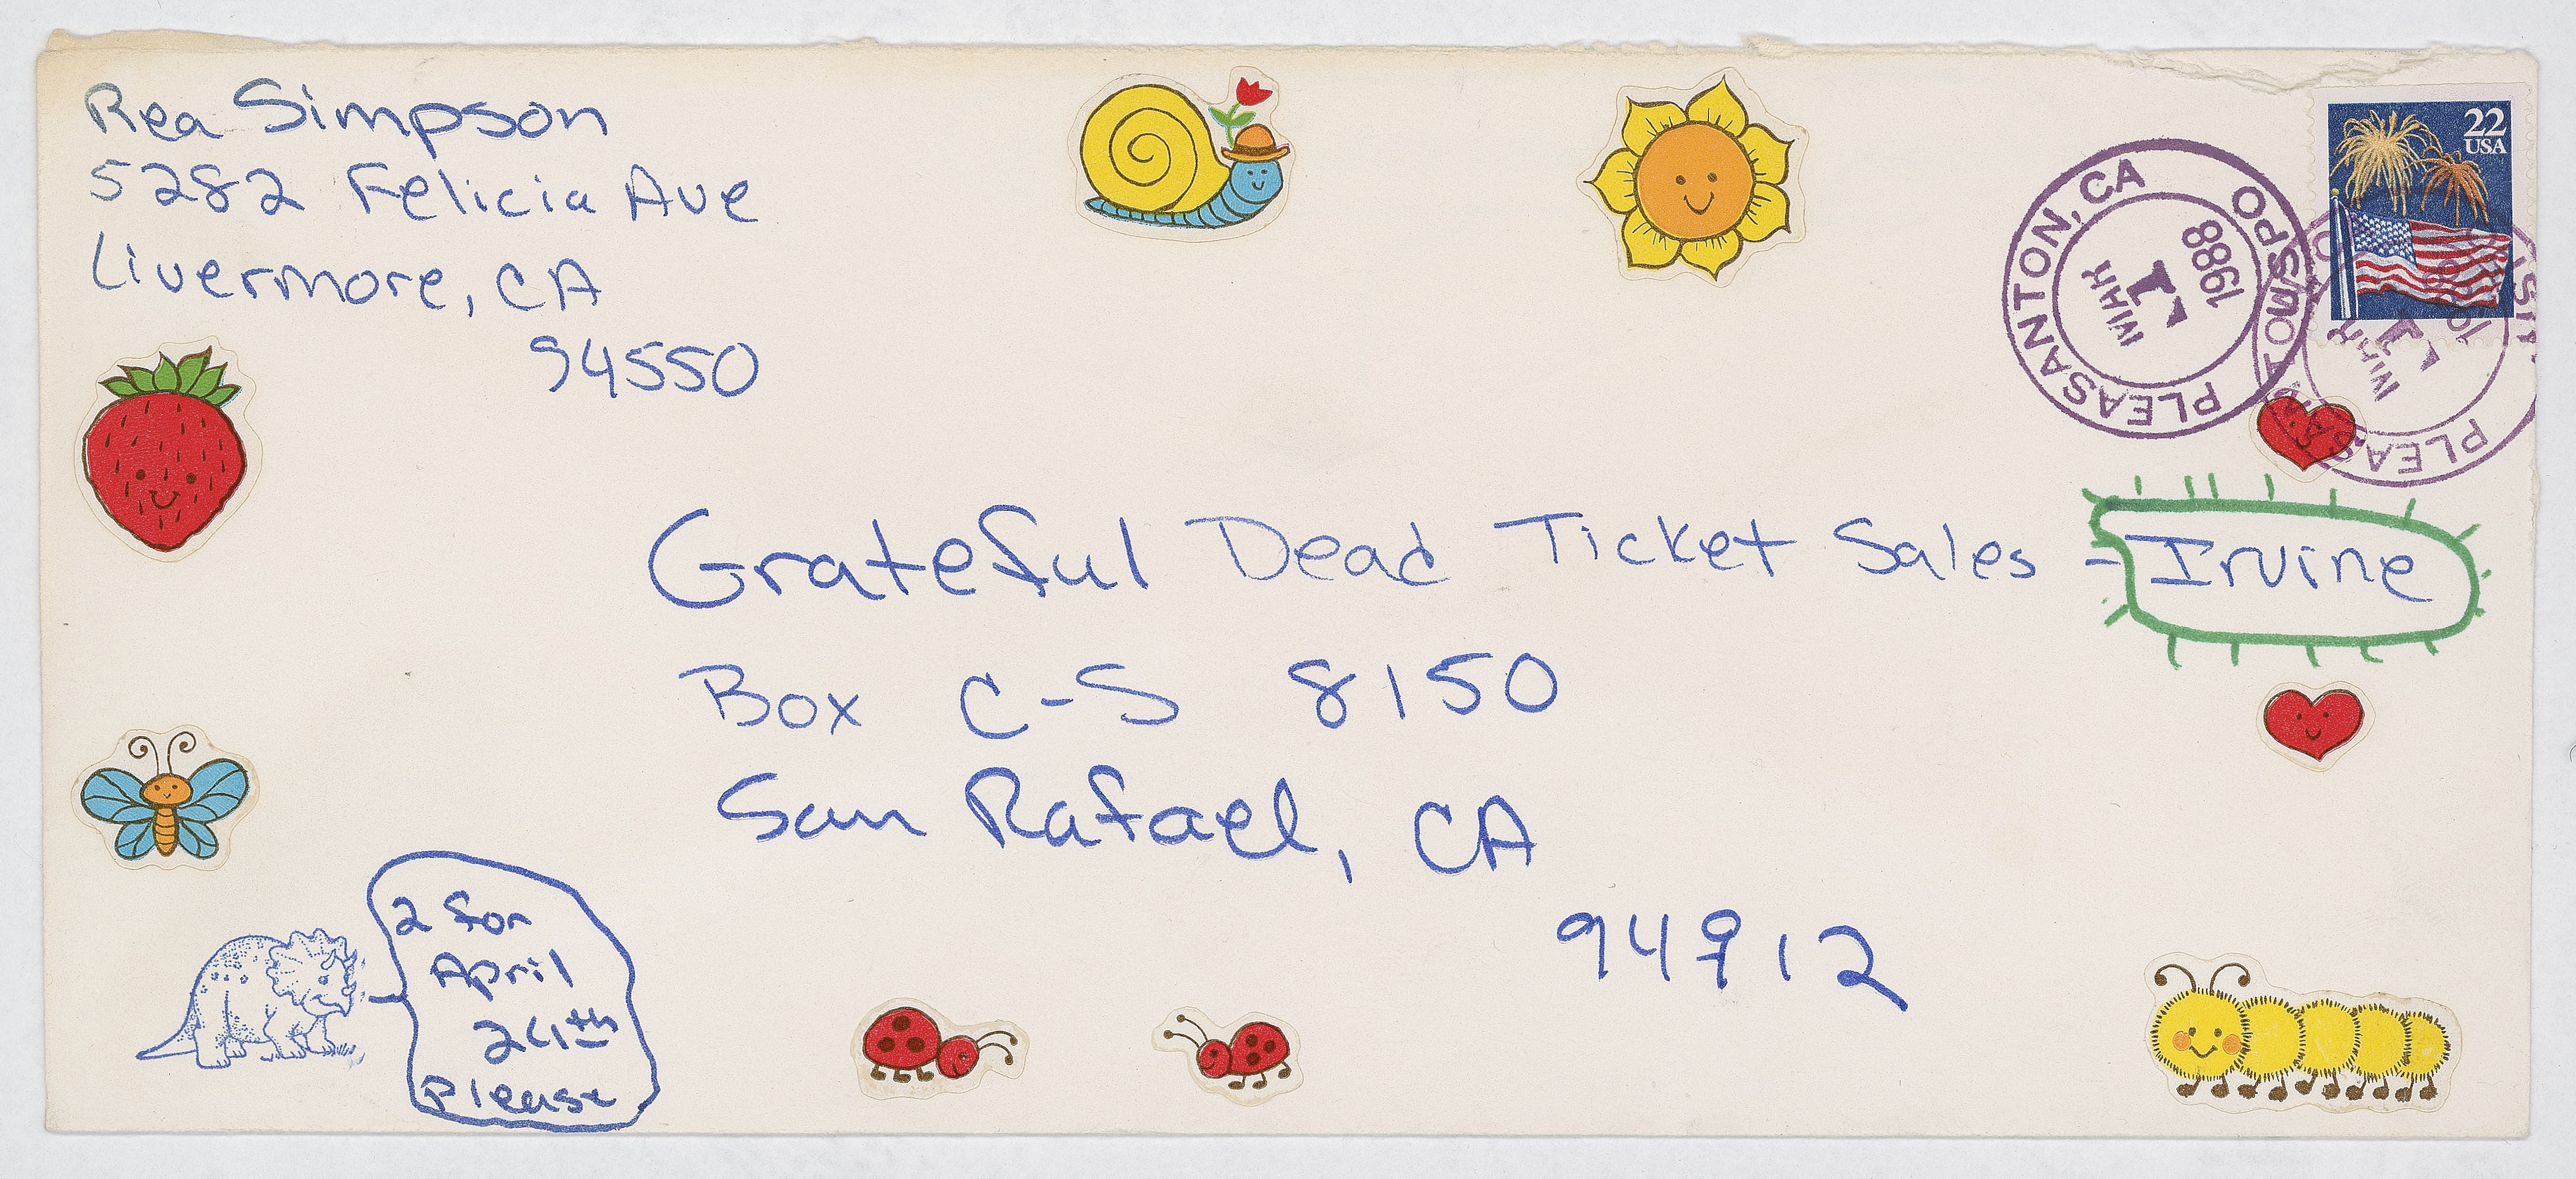 Rea Simpson
5282 Felicia Ave
Livermore, CA
94550
22
USA
PLEASANTON, CA
MAR
1
1988
Grateful Dead Ticket Sales - Irvine
Box C-S 8150
San Rafael, CA
94912
2 for
April
24th
Please